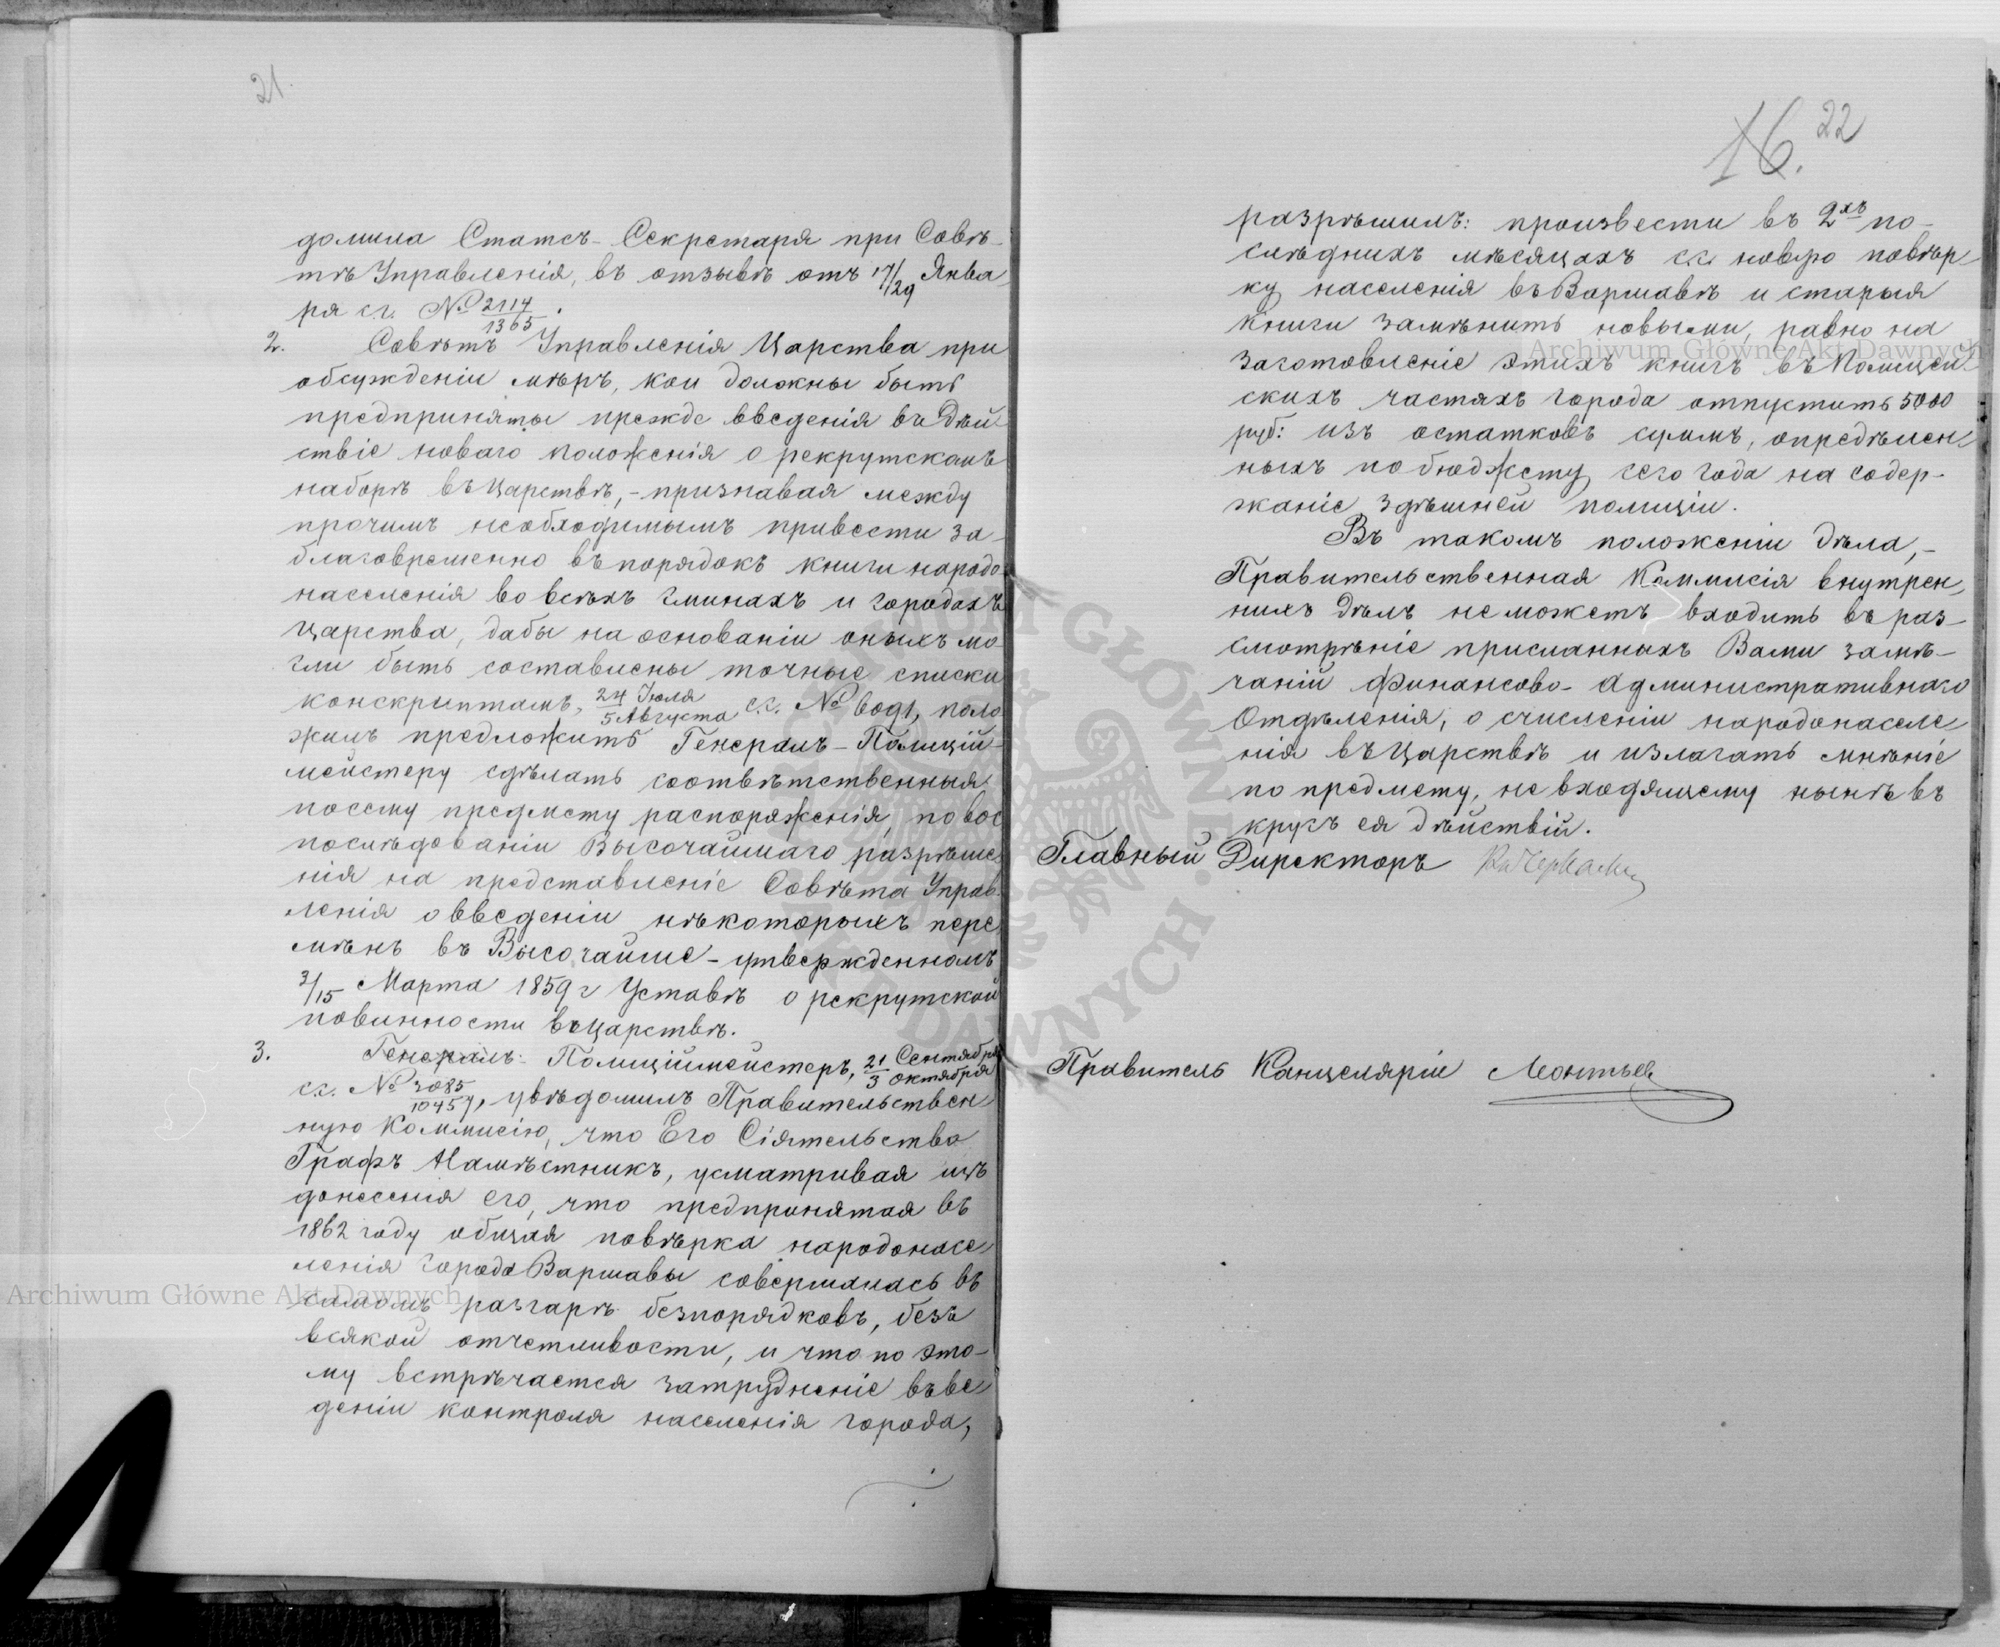 21.
домила Статсъ-Секретаря при Совѣ-
тѣ Управленія, въ отзывѣ отъ 17/29 Янва
ря с.г. № 2114/1365.
2. Совѣтъ Управленія Царства при
обсужденіи мѣръ, кои должны быть
предприняты прежде введенія въ дѣй
ствіе новаго положенія о рекрутскомъ
наборѣ въ Царствѣ, - признавая между
прочимъ необходимымъ привести за-
благовременно въ порядокъ книги народо
населенія во всѣхъ гминахъ и городахъ
Царства, дабы на основаніи оныхъ мо
гли быть составлены точные списки
конскриптамъ, 24 Іюля/5 Августа с.г. № 6091, поло
жилъ предложить Генералъ-Полиціи-
мейстеру сдѣлать соотвѣтственныя
по сему предмету распоряженія, по вос
послѣдованіи Высочайшаго разрѣше
нія на представленіе Совѣта Управ
ленія о введеніи нѣкоторыхъ пере
мѣнъ въ Высочайше-утвержденномъ
3/15 Марта 1859 г Уставѣ о рекрутской
повинности въ Царствѣ.
3. Генералъ-Полиціймейстеръ, 21 Сентября/3 Октября
с.г. № 3085/10457, увѣдомилъ Правительствен
ную Коммисію, что Его Сіятельство
Графъ Намѣстникъ, усматривая изъ
донесенія его, что предпринятая въ
1862 году общая повѣрка народонасе
ленія города Варшавы совершалась въ
самомъ разгарѣ безпорядковъ, безъ
всякой отчетливости, и что по это-
му встрѣчается затрудненіе въ ве
деніи контроля населенія города,
16. 22
разрѣшилъ: произвести въ 2хъ по-
слѣднихъ мѣсяцахъ с.г. новую повѣр
ку населенія въ Варшавѣ и старыя
книги замѣнить новыми, равно на
заготовленіе этихъ книгъ въ Полицей
скихъ частяхъ города отпустить 5000
руб: изъ остатковъ суммъ, опредѣлен
ныхъ по бюджету сего года на содер-
жаніе здѣшней полиціи.
Въ такомъ положеніи дѣла, -
Правительственная Коммисія внутрен
нихъ дѣлъ не можетъ входить въ раз-
смотрѣніе присланныхъ Вами замѣ-
чаній Финансово-Административнаго
Отдѣленія, о счисленіи народонаселе
нія въ Царствѣ и излагать мнѣніе
по предмету, не входящему нынѣ въ
кругъ ея дѣйствій.
Главный Директоръ
Правитель Канцеляріи Леонтьев
Archiwum Główne Akt Dawnych
Archiwum Główne Akt Dawnych